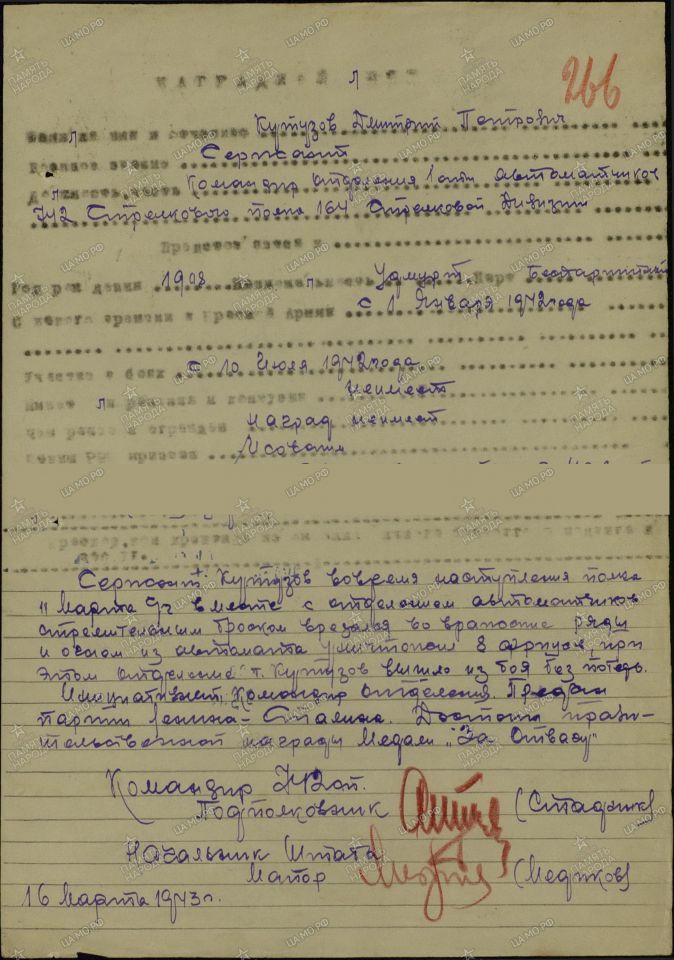 266
НАГРАДНОЙ ЛИСТ
Фамилия имя и отчество Кутузов Дмитрий Петрович
Военное звание Сержант
Должность, часть Командир отделения 1 роты автоматчиков
742 Стрелкового полка 164 Стрелковой дивизии
Представляется к
Год рождения 1908 Национальность Удмурт. Парт Беспартийный
С какого времени в Красной Армии с 1 Января 1942 года
Участие в боях с 10 Июля 1942 года
Имеет ли ранения и контузии Неимеет
Чем ранее награжден Наград неимеет
Каким РВК призван
Сержант Кутузов вовремя наступления полка
11 марта 43 вместе с отделением автоматчиков
стремительным броском врезался во вражеские ряды
и огнем из автомата уничтожил 8 фрицев, при
этом отделение т. Кутузов вышло из боя без потерь.
Инициативный командир отделения. Предан
партии Ленина-Сталина. Достоин прави-
тельственной награды Медали "За Отвагу"
Командир 742 сп.
Подполковник
Начальник Штаба
Майор
16 марта 1943 г.
ПАМЯТЬ НАРОДА
ЦАМО.РФ